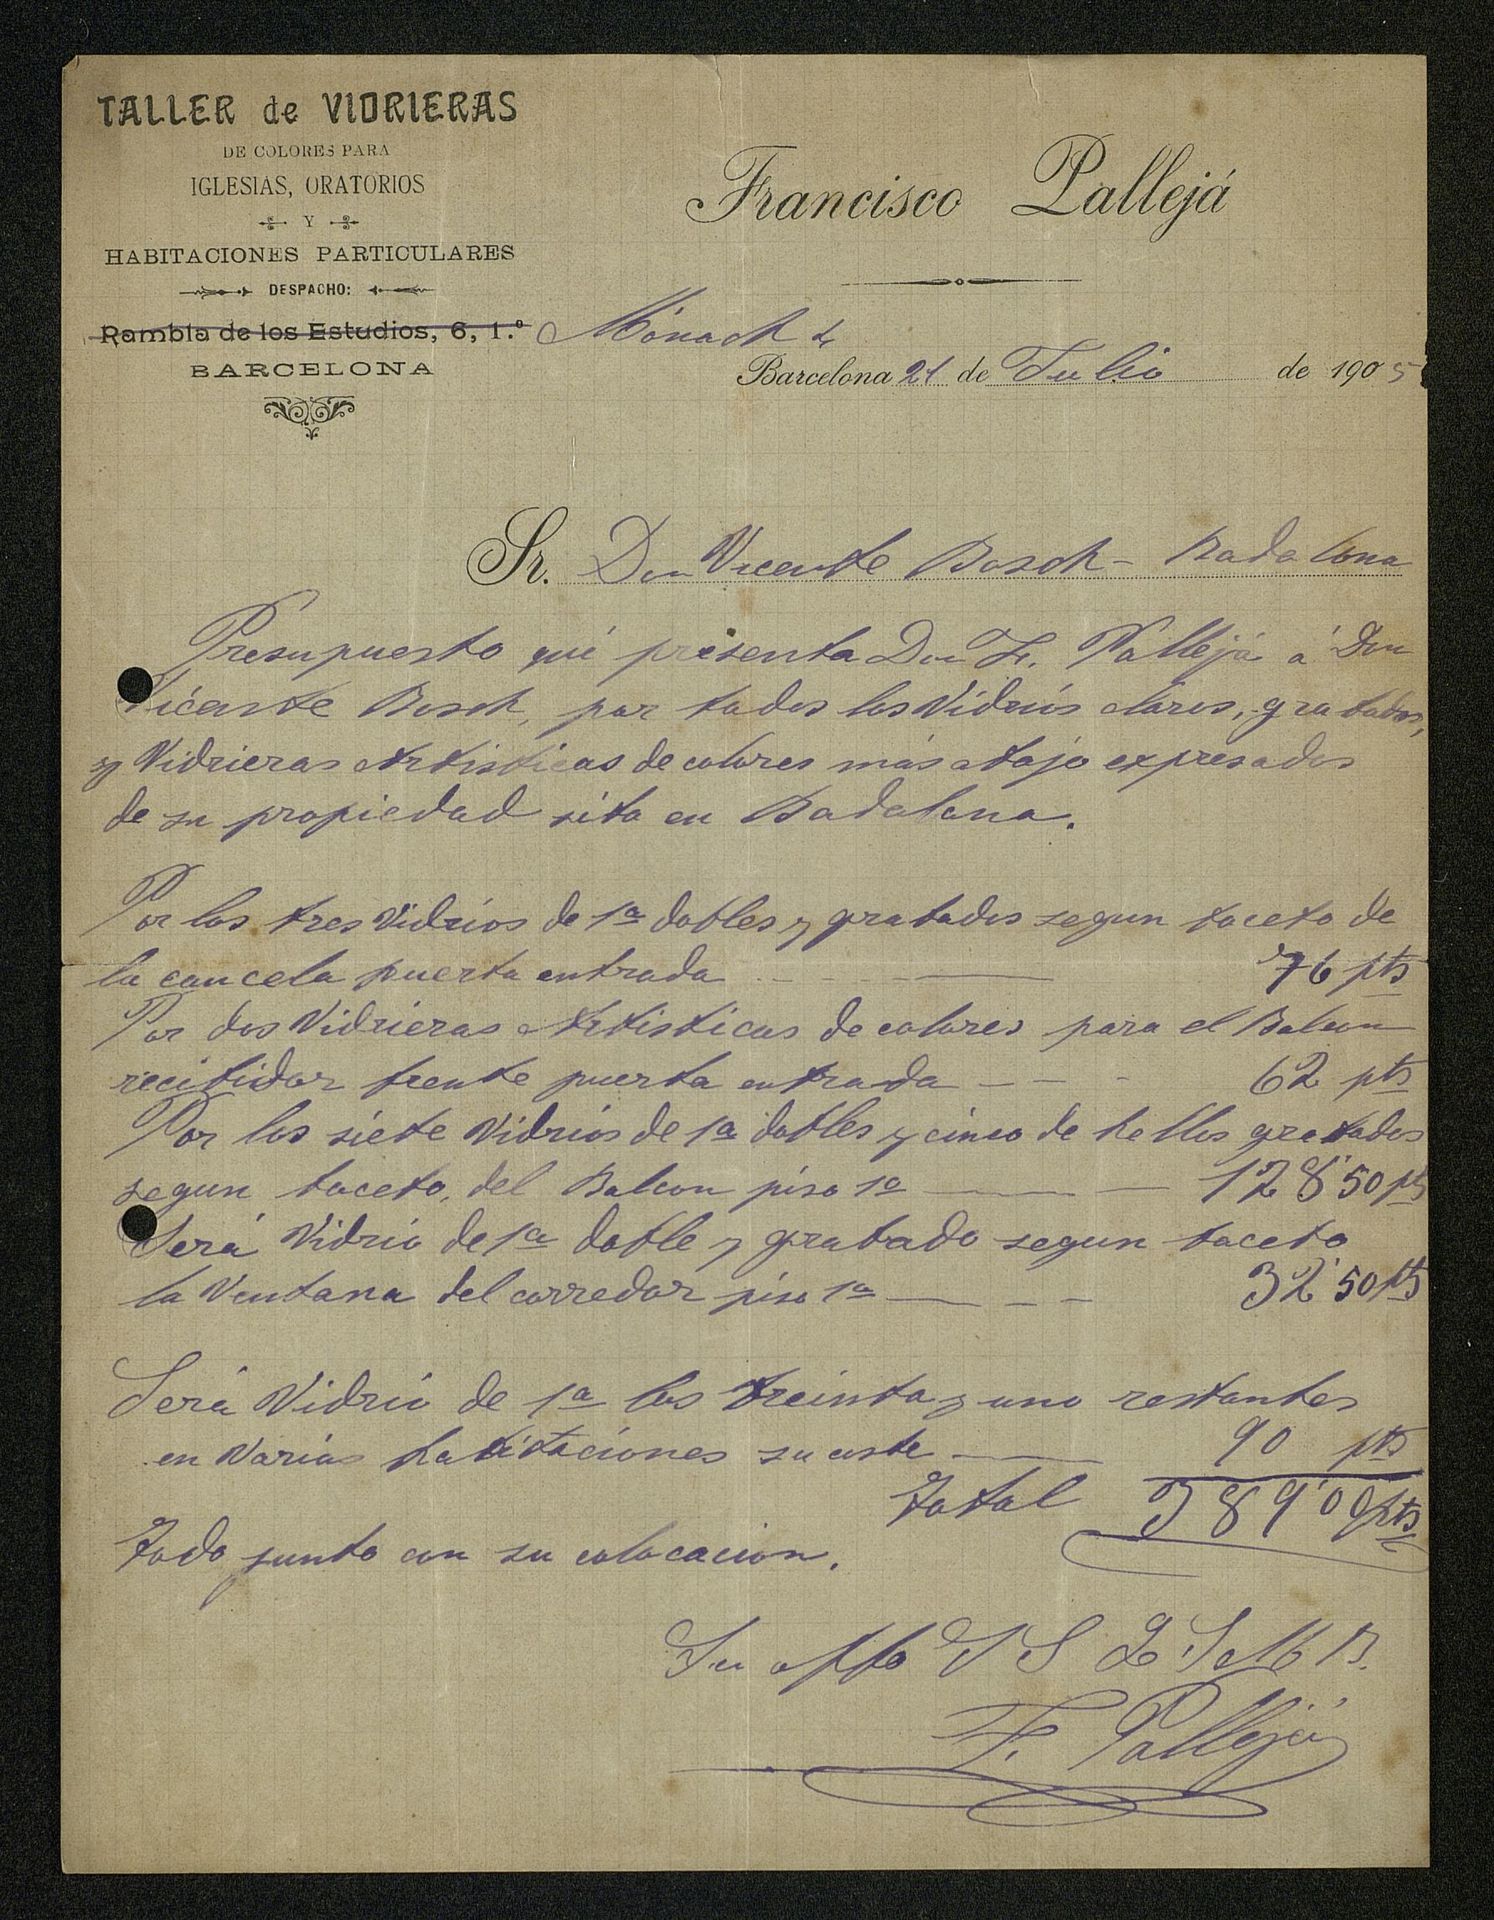 TALLER de VIDRIERAS
DE COLORES PARA
IGLESIAS, ORATORIOS
Y
HABITACIONES PARTICULARES
DESPACHO:
Rambla de los Estudios, 6, 1.º Mónach 4
BARCELONA
Francisco Pallejá
Barcelona 21 de Julio de 1905
Sr. Don Vicente Bosch - Badalona
Presupuesto qué presenta Don F. Pallejá á Don
Vicente Bosch, por todos los Vidriós claros, grabados,
y Vidrieras Artisticas de colores más abajo expresados
de su propiedad sita en Badalona.
Por los tres Vidrios de 1ª dobles y grabados segun boceto de
la cancela puerta entrada 76 pts
Por dos Vidrieras Artisticas de colores para el Balcon
recibidor frente puerta entrada 62 pts
Por los siete Vidriós de 1ª dobles y cinco de hellos grabados
segun boceto, del Balcon piso 1º 128'50 pts
Será Vidrio de 1ª doble y grabado segun boceto
la Ventana del corredor piso 1º 32'50 pts
Será Vidrió de 1ª los treinta y uno restantes
en Varias habitaciones su coste 90 pts
Total 389'00 pts
Todo junto con su colocacion.
Su affo S S Q S M B.
F. Pallejá